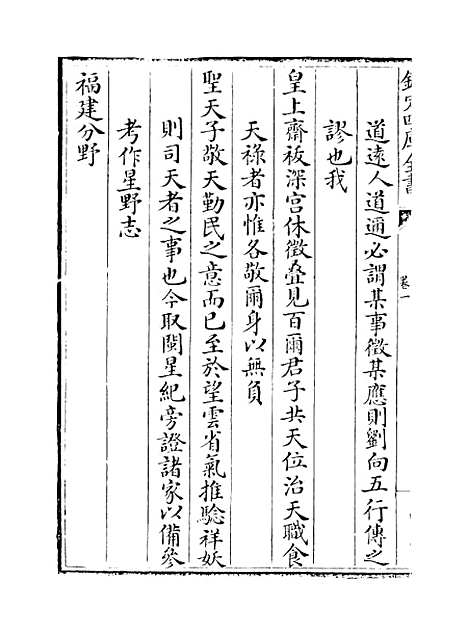 欽定四庫全書
卷一
道遠人道邇必謂某事徵某應則劉向五行傳之
謬也我
皇上齋祓深宫休徵叠見百爾君子共天位治天職食
天祿者亦惟各敬爾身以無負
聖天子敬天勤民之意而已至於望雲省氣推騐祥妖
則司天者之事也今取閩星紀旁證諸家以備參
考作星野志
福建分野